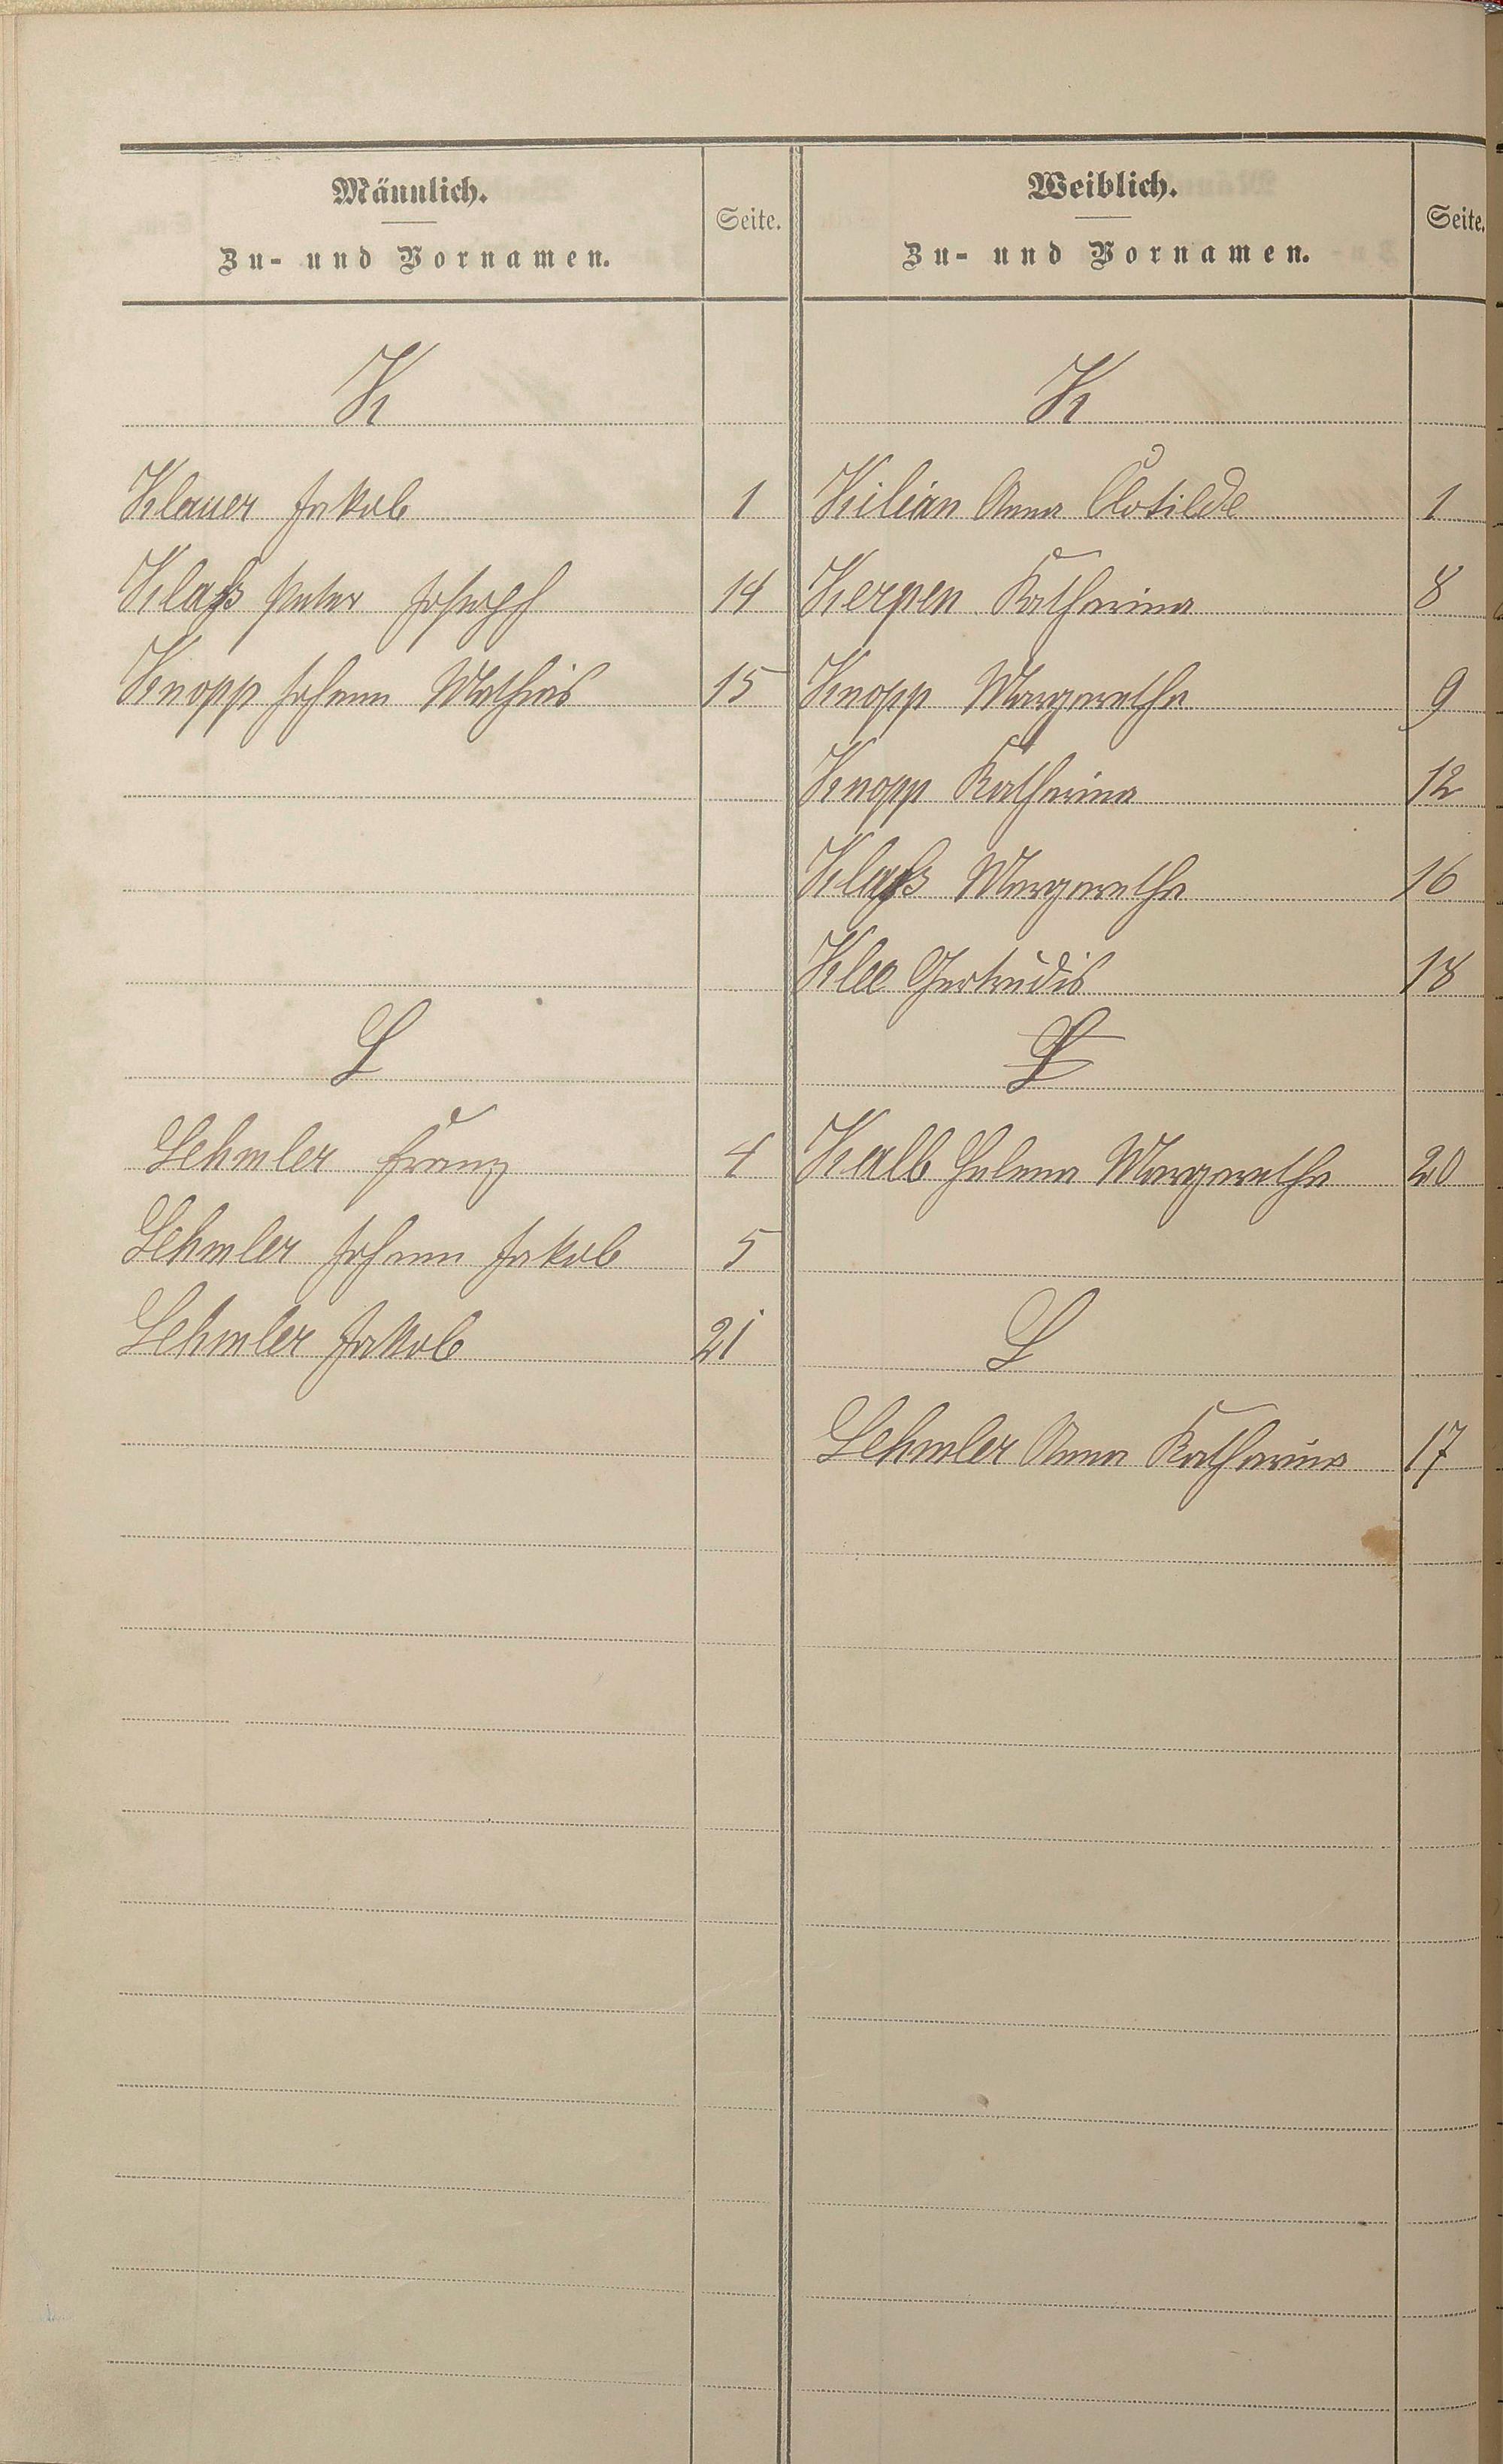 Männlich.
Zu- und Vornamen.
Seite.
K
Klauer Jakob 1
Klaß Peter Joseph 14
Knopp Johann Mathias 15
L
Lehmler Franz 4
Lehmler Johann Jakob 5
Lehmler Jakob 21
Weiblich.
Zu- und Vornamen.
Seite.
K
Kilian Anna Clotilde 1
Kerpen Katharina 8
Knopp Margarethe 9
Knopp Katharina 12
Klaß Margarethe 16
Klee Gertrudis 18
L
Kalb Helena Margarethe 20
L
Lehmler Anna Katharina 17